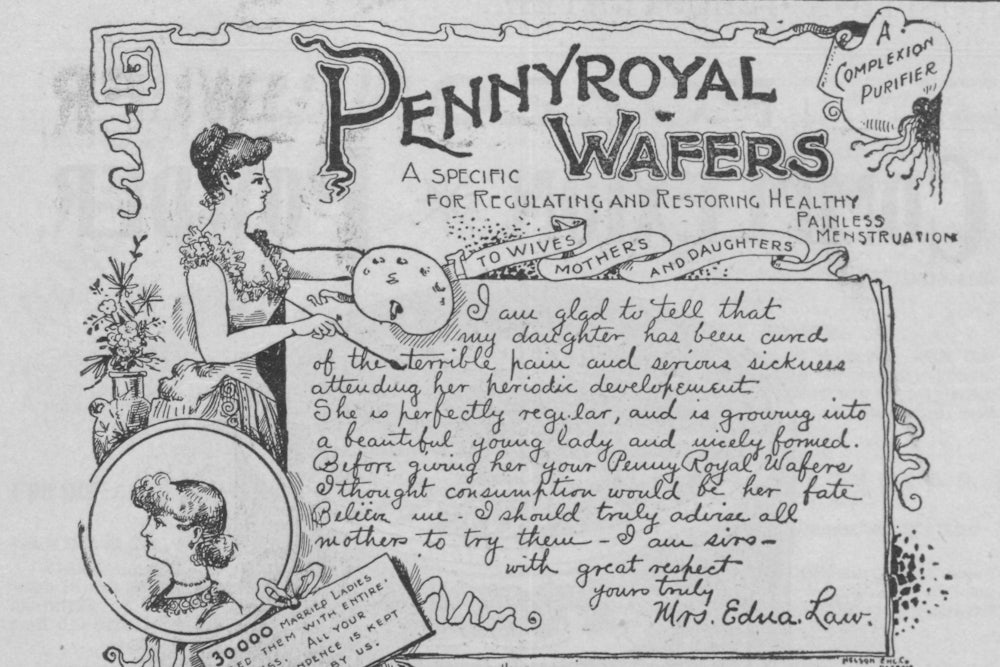 A
COMPLEXION
PURIFIER
PENNYROYAL
WAFERS
A SPECIFIC
FOR REGULATING AND RESTORING HEALTHY
PAINLESS
MENSTRUATION
TO WIVES
MOTHERS
AND DAUGHTERS
I am glad to tell that
my daughter has been cured
of the terrible pain and serious sickness
attending her periodic developement
She is perfectly regular, and is growing into
a beautiful young lady and nicely formed.
Before giving her your PennyRoyal Wafers
I thought consumption would be her fate
Believe me - I should truly advise all
mothers to try them - I am sirs -
with great respect
yours truly
Mrs. Edna Law.
30000 MARRIED LADIES
THEM WITH ENTIRE
ALL YOUR
IS KEPT
BY US.
NELSON ENG. CO.